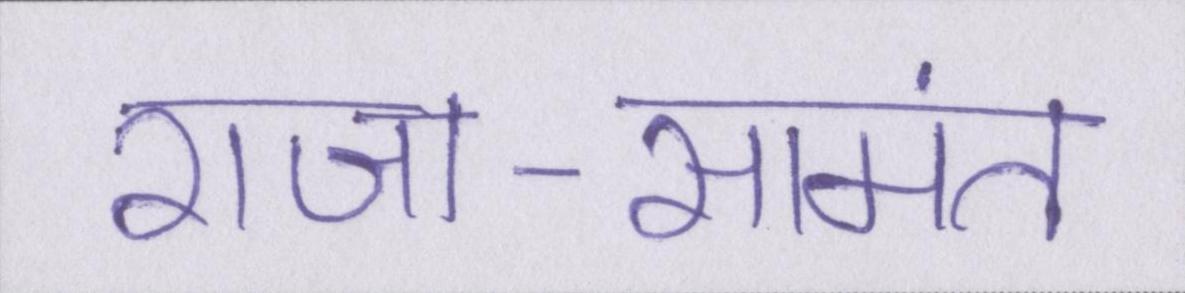 राजा-सामंत